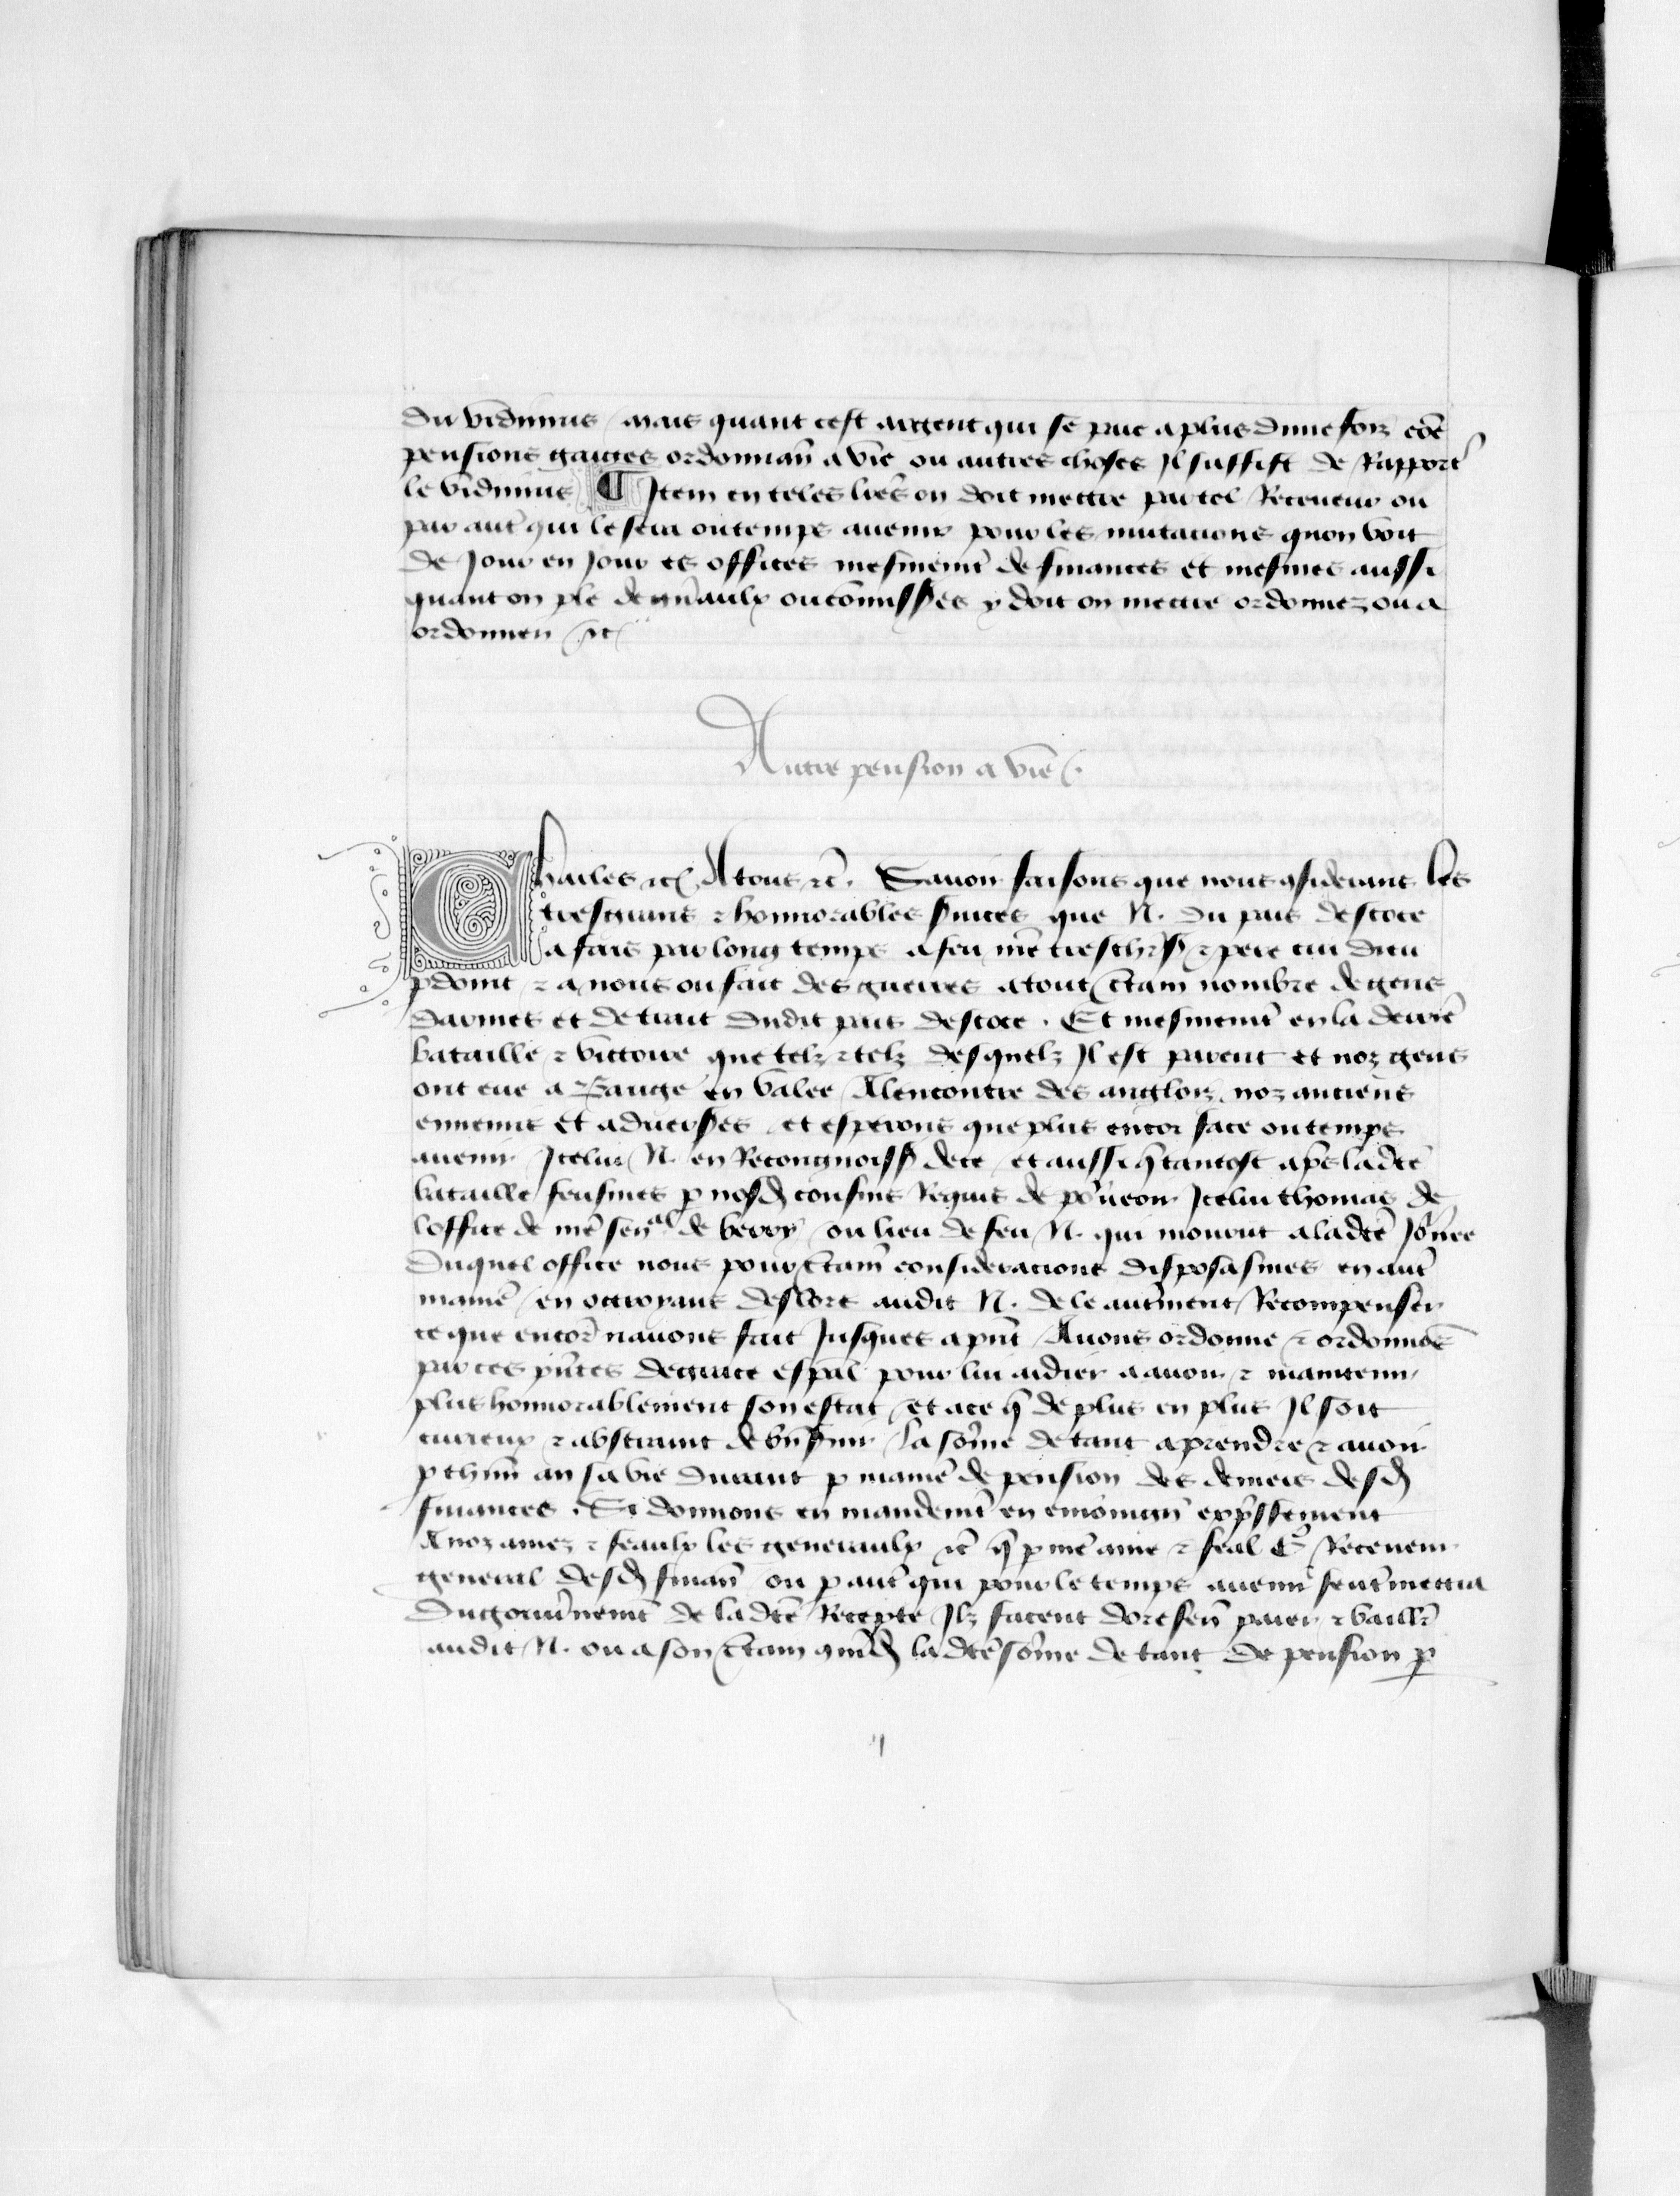 du vidimus / mais quant cest argent qui se paie a plus dune foiz cōe
pensions gaiges ordonnan̄ a vie ou autres choses Il suffist de Rapport̄
le vidimus ¶ Item en teles lr̄es on doit mettre par tel Receveur ou
par aut̄ qui le sera ou temps avenir pour les mutacions quon voit
de jour en jour es offices mesmem̄t de finances et mesmes aussi
quant on ple de gn̄aulx ou com̄iss̄es y doit on mettre ordonnez ou a
ordonnen̄ /⁊c/
Autre pension a vie /.
Charles ⁊c/ A tous ⁊c̄. Savoir faisons que nous ꝯsiderans les
tresgrans ⁊ honnorables ẜvices que N. du pais descoce
a fais par long temps a feu nr̄e treschr̄ ẜ ⁊ pere cui dieu
pdoint / ⁊ a nous ou fait des guerres a tout c̄tain nombre de gens
darmes et de trait dudit pais descoce . Et mesmem̄t en la derrē
bataille ⁊ victoire que telz ⁊ telz desquelz Il est parent et noz gens
ont eue a Bauge en valee / Alencontre des anglois noz anciens
ennemis et advers̄es / et esperons que plus encor face ou temps
avenir / Icelui N. en Recongnoiss̄ de ce / et aussi q̄ tantost ap̄s ladc̄e
bataille feusmes p nosd̄ cousins Requis de po᷑veoir Icelui thomas de
loffice de nr̄e sen̄ᵃˡ de berry / ou lieu de feu N. qui mourut a ladc̄e Jo᷑nee
Duquel office nous pour c̄tain᷑ consideracions disposasmes en aut̄
manie᷑ / en octroyant deslors audit N. de le autr̄ment Recompenser
ce que encor̄ navons fait Jusques a pn̄t / Avons ordonne ⁊ ordonnōs
par ces pn̄tes de grace esp̄al pour lui aidier a avoir ⁊ maintenir
plus honnorablement son estat / et a ce q̄ de plus en plus Il soit
curieux ⁊ abstraint de bn̄ ẜvir / la som̄e de tant a prendre ⁊ avoir
p chm̄ an sa vie durant p manie᷑ de pension des deniers desd̄
finances . Si donnons en mandem̄t en enioingn̄ exp̄ssement
A noz amez ⁊ feaulx les generaulx ⁊c̄ q̄ p nr̄e ame ⁊ feal Receveur
general desd̄ finan̄ ou p aut̄ qui pour le temps avenir sentr̄mettra
du gouvernem̄t de ladc̄e Recepte Ilz facent doresen̄ paier ⁊ baillr̄
audit N. ou a son c̄tain ꝯmd̄ ladc̄e som̄e de tant de pension p